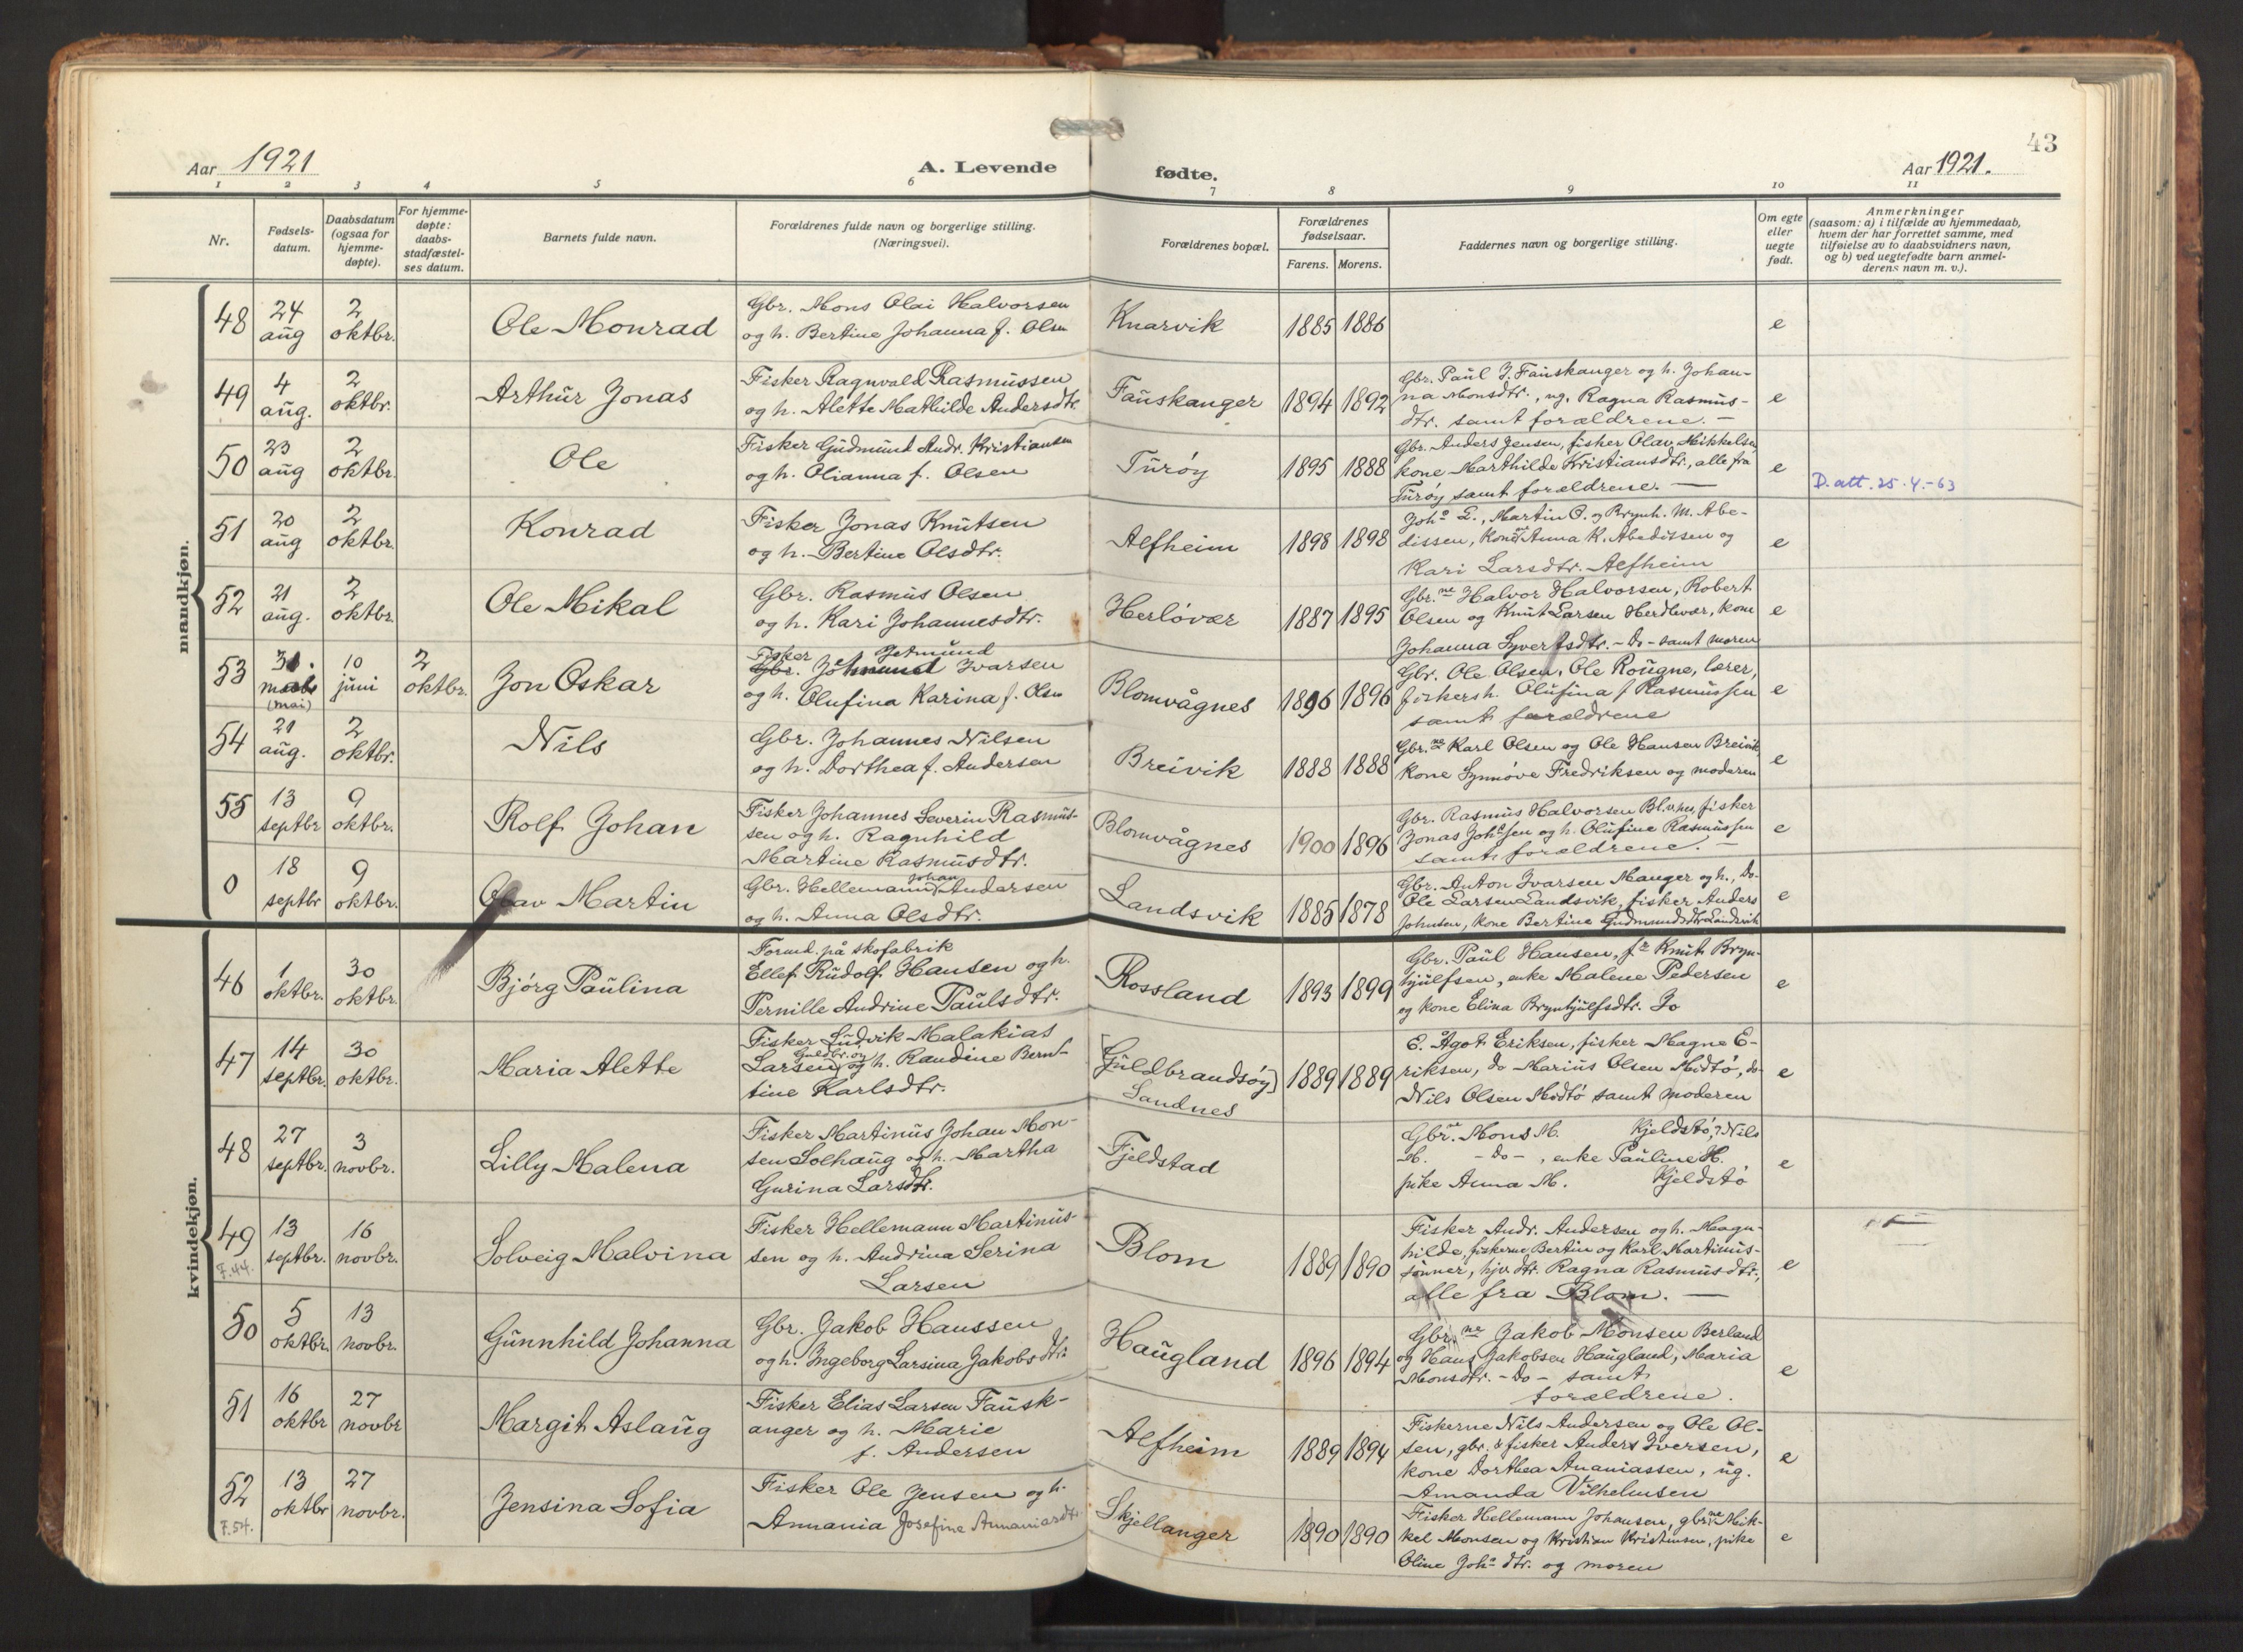 43
Aar 1921
A. Levende
fødte.
Aar 1921.
1 2 3 4 5 6 7 8 9 10 11
Nr.
Fødsels-
datum.
Daabsdatum
(ogsaa for
hjemme-
døpte).
For hjemme-
døpte:
daabs-
stadfæstel-
ses datum.
Barnets fulde navn.
Forældrenes fulde navn og borgerlige stilling.
(Næringsvei).
Forældrenes bopæl.
Forældrenes
fødselsaar.
Farens. Morens.
Faddernes navn og borgerlige stilling.
Om egte
eller
uegte
født.
Anmerkninger
(saasom: a) i tilfælde av hjemmedaab,
hvem der har forrettet samme, med
tilføielse av to daabsvidners navn,
og b) ved uegtefødte barn anmel-
derens navn m. v.).
mandkjøn.
48
24
aug
2
oktbr.
Ole Monrad
Gbr. Mons Olai Halvorsen
og h. Bertine Johanna f. Olsen
Knarvik
1885 1886
e
49
4
aug.
2
oktbr.
Arthur Jonas
Fisker Ragnvald Rasmussen
og h. Alette Mathilde Andersdtr.
Fauskanger
1894 1892
Gbr. Paul J. Fauskanger og h. Johan-
na Monsdtr., ug. Ragna Rasmus-
dtr. samt forældrene. —
e
50
23
aug
2
oktbr.
Ole
Fisker Gudmund Andr. Kristiansen
og h. Olianna f. Olsen
Turøy
1895 1888
Gbr. Anders Jensen, fisker Olav Mikkelsen,
kone Marthilde Kristiansdtr., alle fra
Turøy samt forældrene. —
e
D. att. 25.4.-63
51
20
aug
2
oktbr.
Konrad
Fisker Jonas Knutsen
og h. Bertine Olsdtr.
Alfheim
1898 1898
Joh.s L., Martin O. og Brynh. M. Abe-
dissen, Kone Anna K. Abedissen og
Kari Larsdtr. Alfheim
e
52
21
aug.
2
oktbr.
Ole Mikal
Gbr. Rasmus Olsen
og h. Kari Johannesdtr.
Herløvær
1887 1895
Gbr.ne Halvor Halvorsen, Robert
Olsen og Knut Larsen Herdlevær, kone
Johanna Syvertsdtr. - Do - samt moren
e
53
31.
(mai)
10
juni
2
oktbr.
Jon Oskar
Fisker Jetmund
Gbr. Johmund Ivarsen
og h. Olufina Karina f. Olsen
Blomvågnes
1896 1896
Gbr. Ole Olsen, Ole Rougne, lærer,
fiskersh. Olufina f Rasmussen
samt forældrene
e
54
21
aug.
2
oktbr.
Nils
Gbr. Johannes Nilsen
og h. Dorthea f. Andersen
Breivik
1888 1888
Gbr.ne Karl Olsen og Ole Hansen Breivik
kone Synnøve Fredriksen og moderen
e
55
13
septbr
9
oktbr.
Rolf Johan
Fisker Johannes Severin Rasmus-
sen og h. Ragnhild
Martine Rasmusdtr.
Blomvågnes
1900 1896
Gbr. Rasmus Halvorsen Bl.v.nes, fisker
Jonas Joh.sen og h. Olufine Rasmussen
samt forældrene. —
e
0
18
septbr
9
oktbr.
Olav Martin
Gbr. Hellemann Johan Andersen
og h. Anna Olsdtr.
Landsvik
1885 1878
Gbr. Anton Ivarsen Manger og h., Do-
Ole Larsen Landsvik, fisker Anders
Johnsen, kone Bertine Gudmundsdtr Landsvik
e
kvindekjøn.
46
1
oktbr.
30
oktbr.
Bjørg Paulina
Formd. på skofabrik
Ellef Rudolf Hansen og h.
Pernille Andrine Paulsdtr.
Rossland
1893 1899
Gbr. Paul Hansen, fr Knut Bryn-
hjulfsen, enke Malene Pedersen
og kone Elina Brynhjulfsdtr. Do
e
47
14
septbr.
30
oktbr.
Maria Alette
Fisker Ludvik Malakias
Larsen Guldbr.øy og h. Randine Bernt-
tine Karlsdtr.
[Guldbrandsøy]
Sandnes
1889 1889
E. Ågot Eriksen, fisker Magne E-
riksen, do Marius Olsen Midtø, do-
Nils Olsen Midtø samt moderen
e
48
27
septbr.
3
novbr.
Lilly Malena
Fisker Martinus Johan Mon-
sen Solhaug og h. Martha
Gurina Larsdtr.
Fjeldstad
Gbr.ne Mons M. Kjeldstø, Nils
M. - Do - , enke Pauline H.
pike Anna M. Kjeldstø
e
49
F.44.
13
septbr.
16
novbr.
Solveig Malvina
Fisker Hellemann Martinus-
sen og h. Andrina Serina
Larsen
Blom
1889 1890
Fisker Andr. Andersen og h. Magn-
hilde, fiskerne Bertin og Karl Martinus-
sønner, hjv. dtr. Ragna Rasmusdtr.,
alle fra Blom. —
e
50
5
oktbr.
13
novbr.
Gunnhild Johanna
Gbr. Jakob Hanssen
og h. Ingeborg Larsina Jakobsdtr.
Haugland
1896 1894
Gbr.ne Jakob Monsen Berland
og Hans Jakobsen Haugland, Maria
Monsdtr. - Do - samt
forældrene.
e
51
16
oktbr
27
novbr
Margit Aslaug
Fisker Elias Larsen Fausk-
anger og h. Marie
f. Andersen
Alfheim
1889 1894
Fiskerne Nils Andersen og Ole Ol-
sen, gbr. & fisker Anders Iversen,
kone Dorthea Ananiassen, ug.
Amanda Vilhelmsen
e
52
F.54.
13
oktbr
27
novbr.
Jensina Sofia
Fisker Ole Jensen og h.
Annania Josefine Annaniasdtr.
Skjellanger
1890 1890
Fisker Hellemann Johansen, gbr.ne Mik-
kel Monsen og Kristian Kristensen, pike
Oline Joh.s dtr. og moren
e